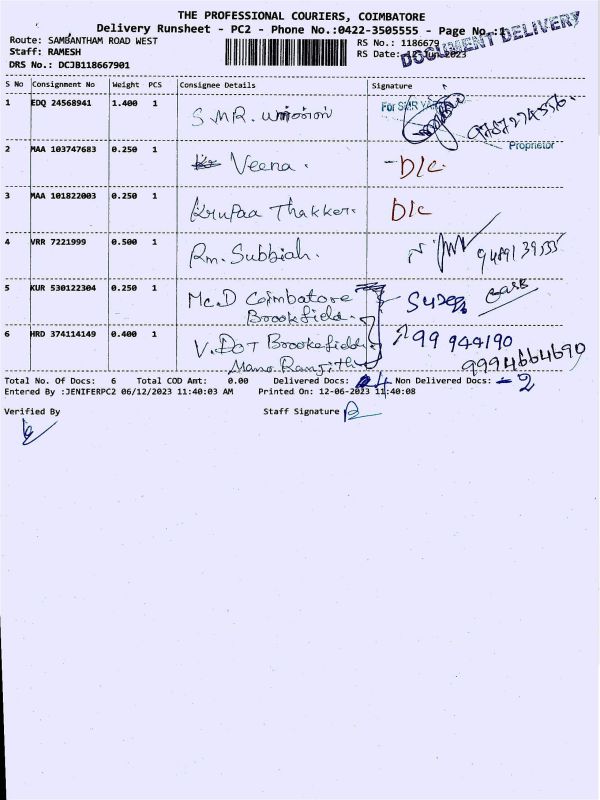 THE PROFESSIONAL COURIERS, COIMBATORE
Delivery Runsheet - PC2 - Phone No.:0422-3505555 - Page No.:1
DOCUMENT DELIVERY
Route: SAMBANTHAM ROAD WEST
RS No.: 1186679
Staff: RAMESH
RS Date: 12-Jun-2023
DRS No.: DCJB118667901
S No Consignment No Weight PCS Consignee Details Signature
1 EDQ 24568941 1.400 1 S.M.R. For SMR
Proprietor
2 MAA 103747683 0.250 1 Veena. D/c
3 MAA 101822003 0.250 1 Krupaa Thakker. D/c
4 VRR 7221999 0.500 1 Rm. Subbiah.
5 KUR 530122304 0.250 1 Mc.D Coimbatore
Brookfield.
6 HRD 374114149 0.400 1 V.DOT Brookefields
99 944190
Mano Ranjith
9994664690
Total No. Of Docs: 6 Total COD Amt: 0.00 Delivered Docs: 4 Non Delivered Docs: 2
Entered By :JENIFERPC2 06/12/2023 11:40:03 AM Printed On: 12-06-2023 11:40:08
Verified By Staff Signature